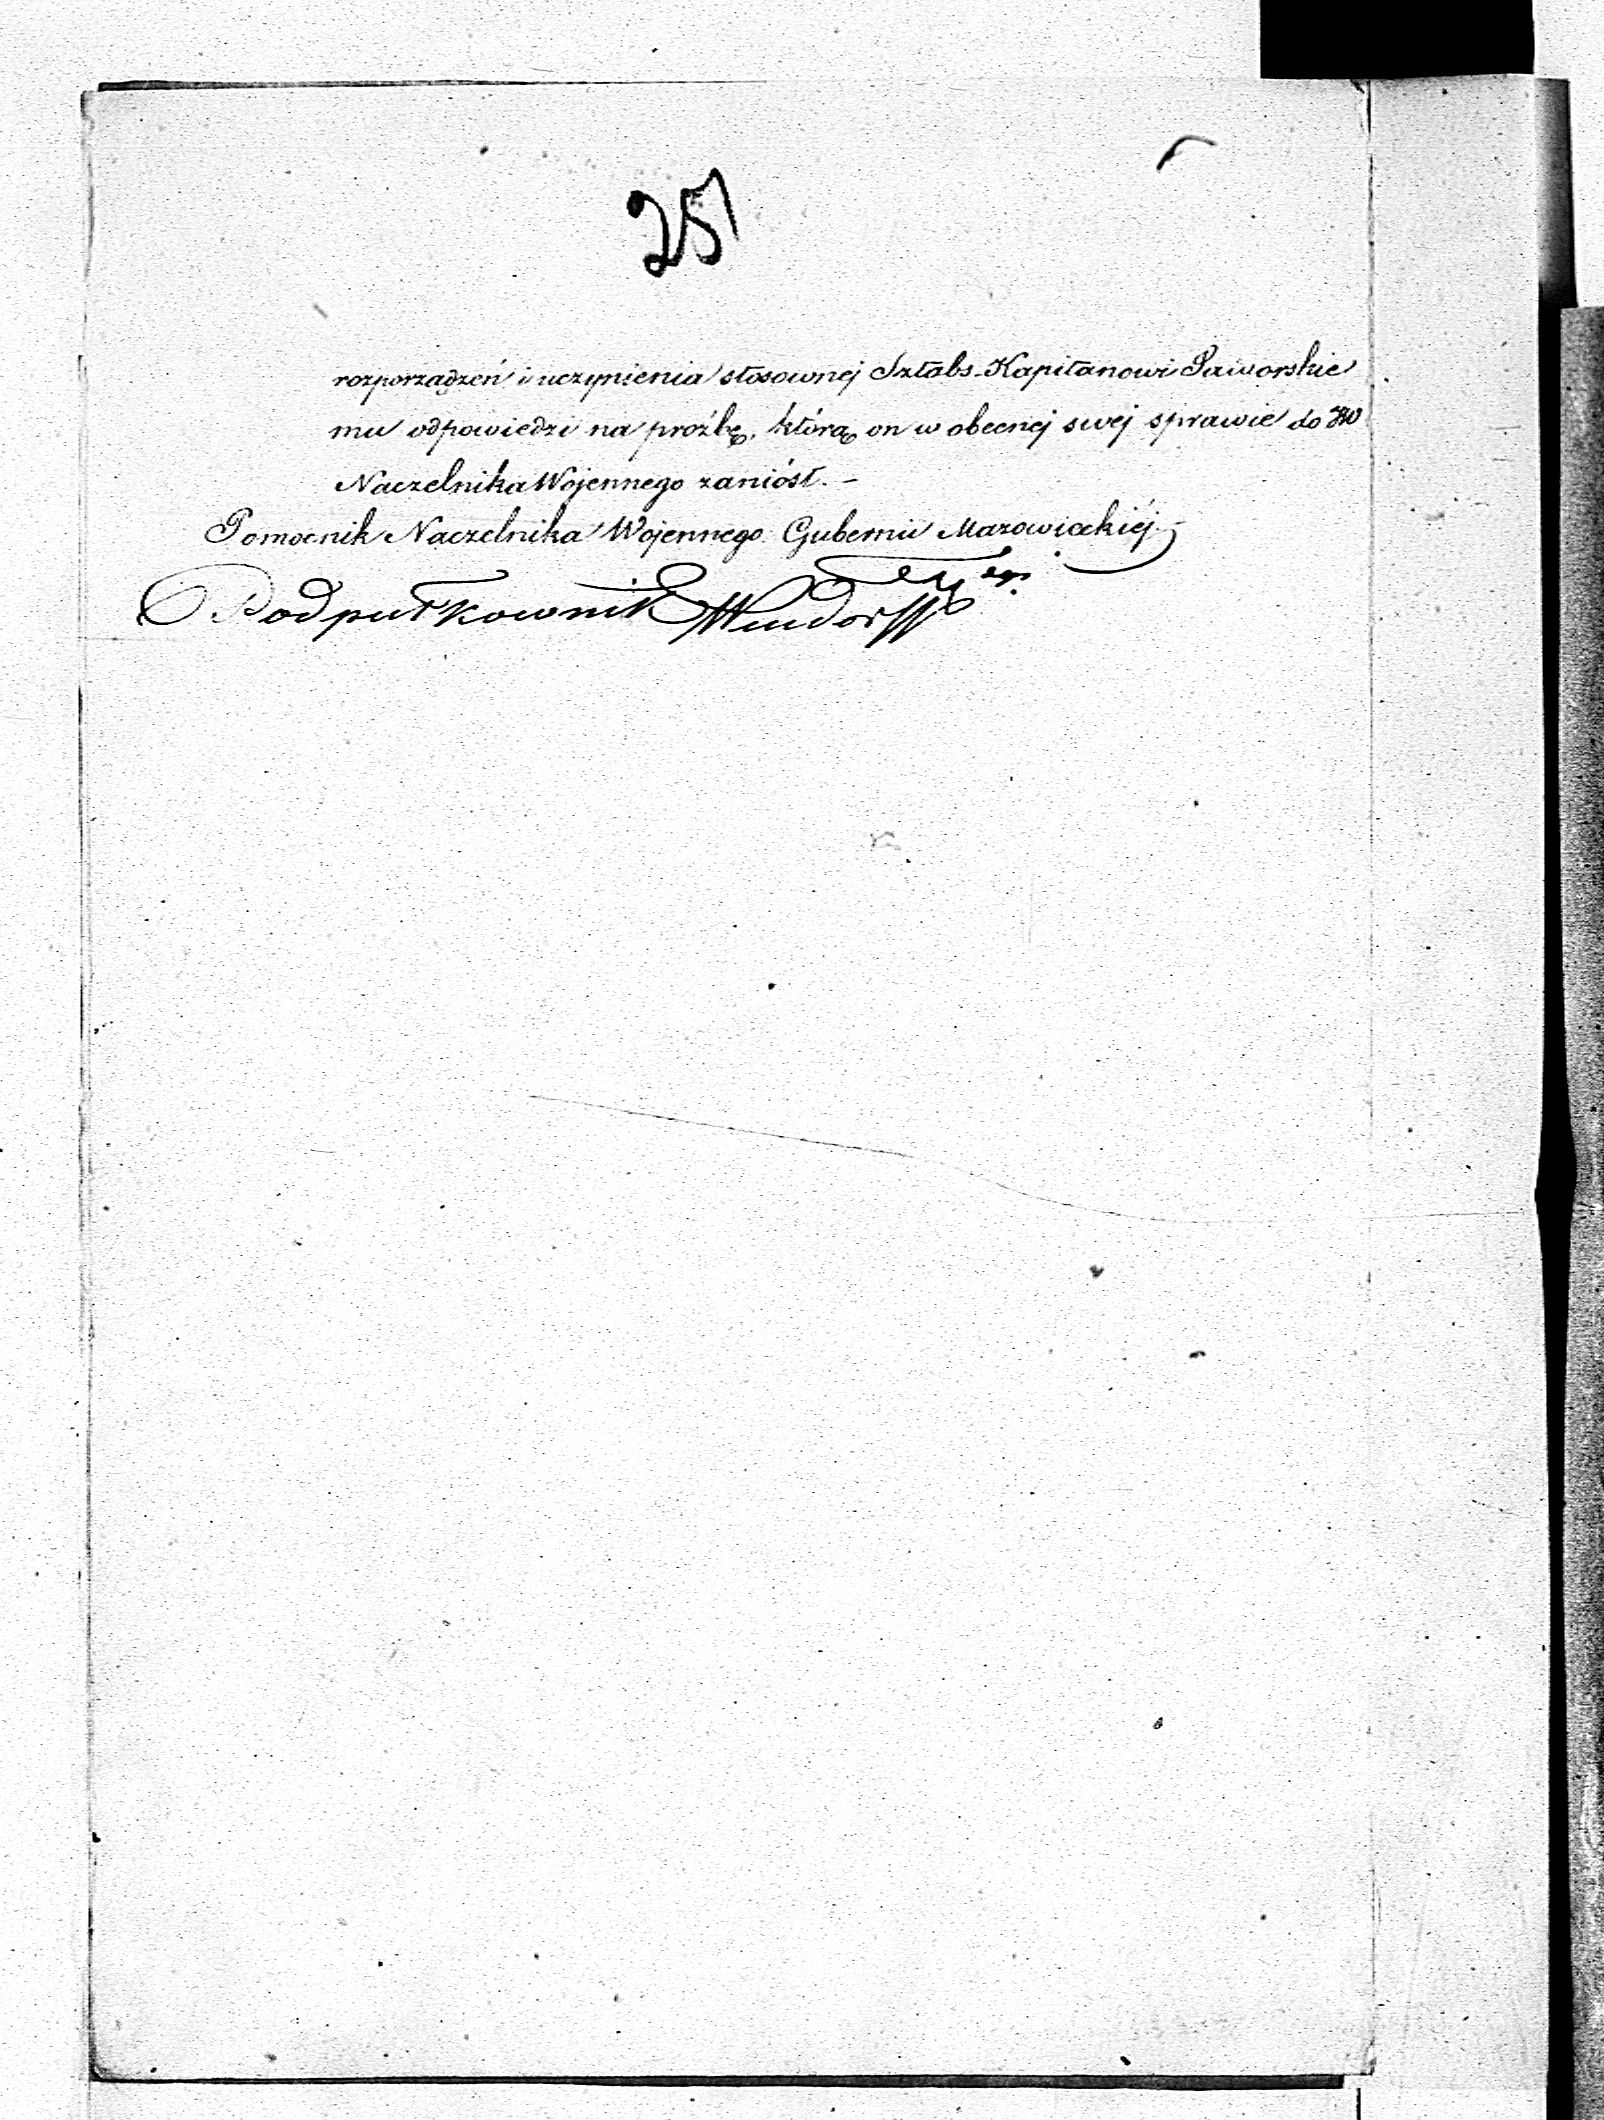 251
rozporządzeń i uczynienia stosownej Sztabs-Kapitanowi Jaworskie
mu odpowiedzi na prożbę, którą on w obecnej swej sprawie do JW
Naczelnika Wojennego zaniósł. –
Pomocnik Naczelnika Wojennego Gubernii Mazowieckiéj
Podpułkownik